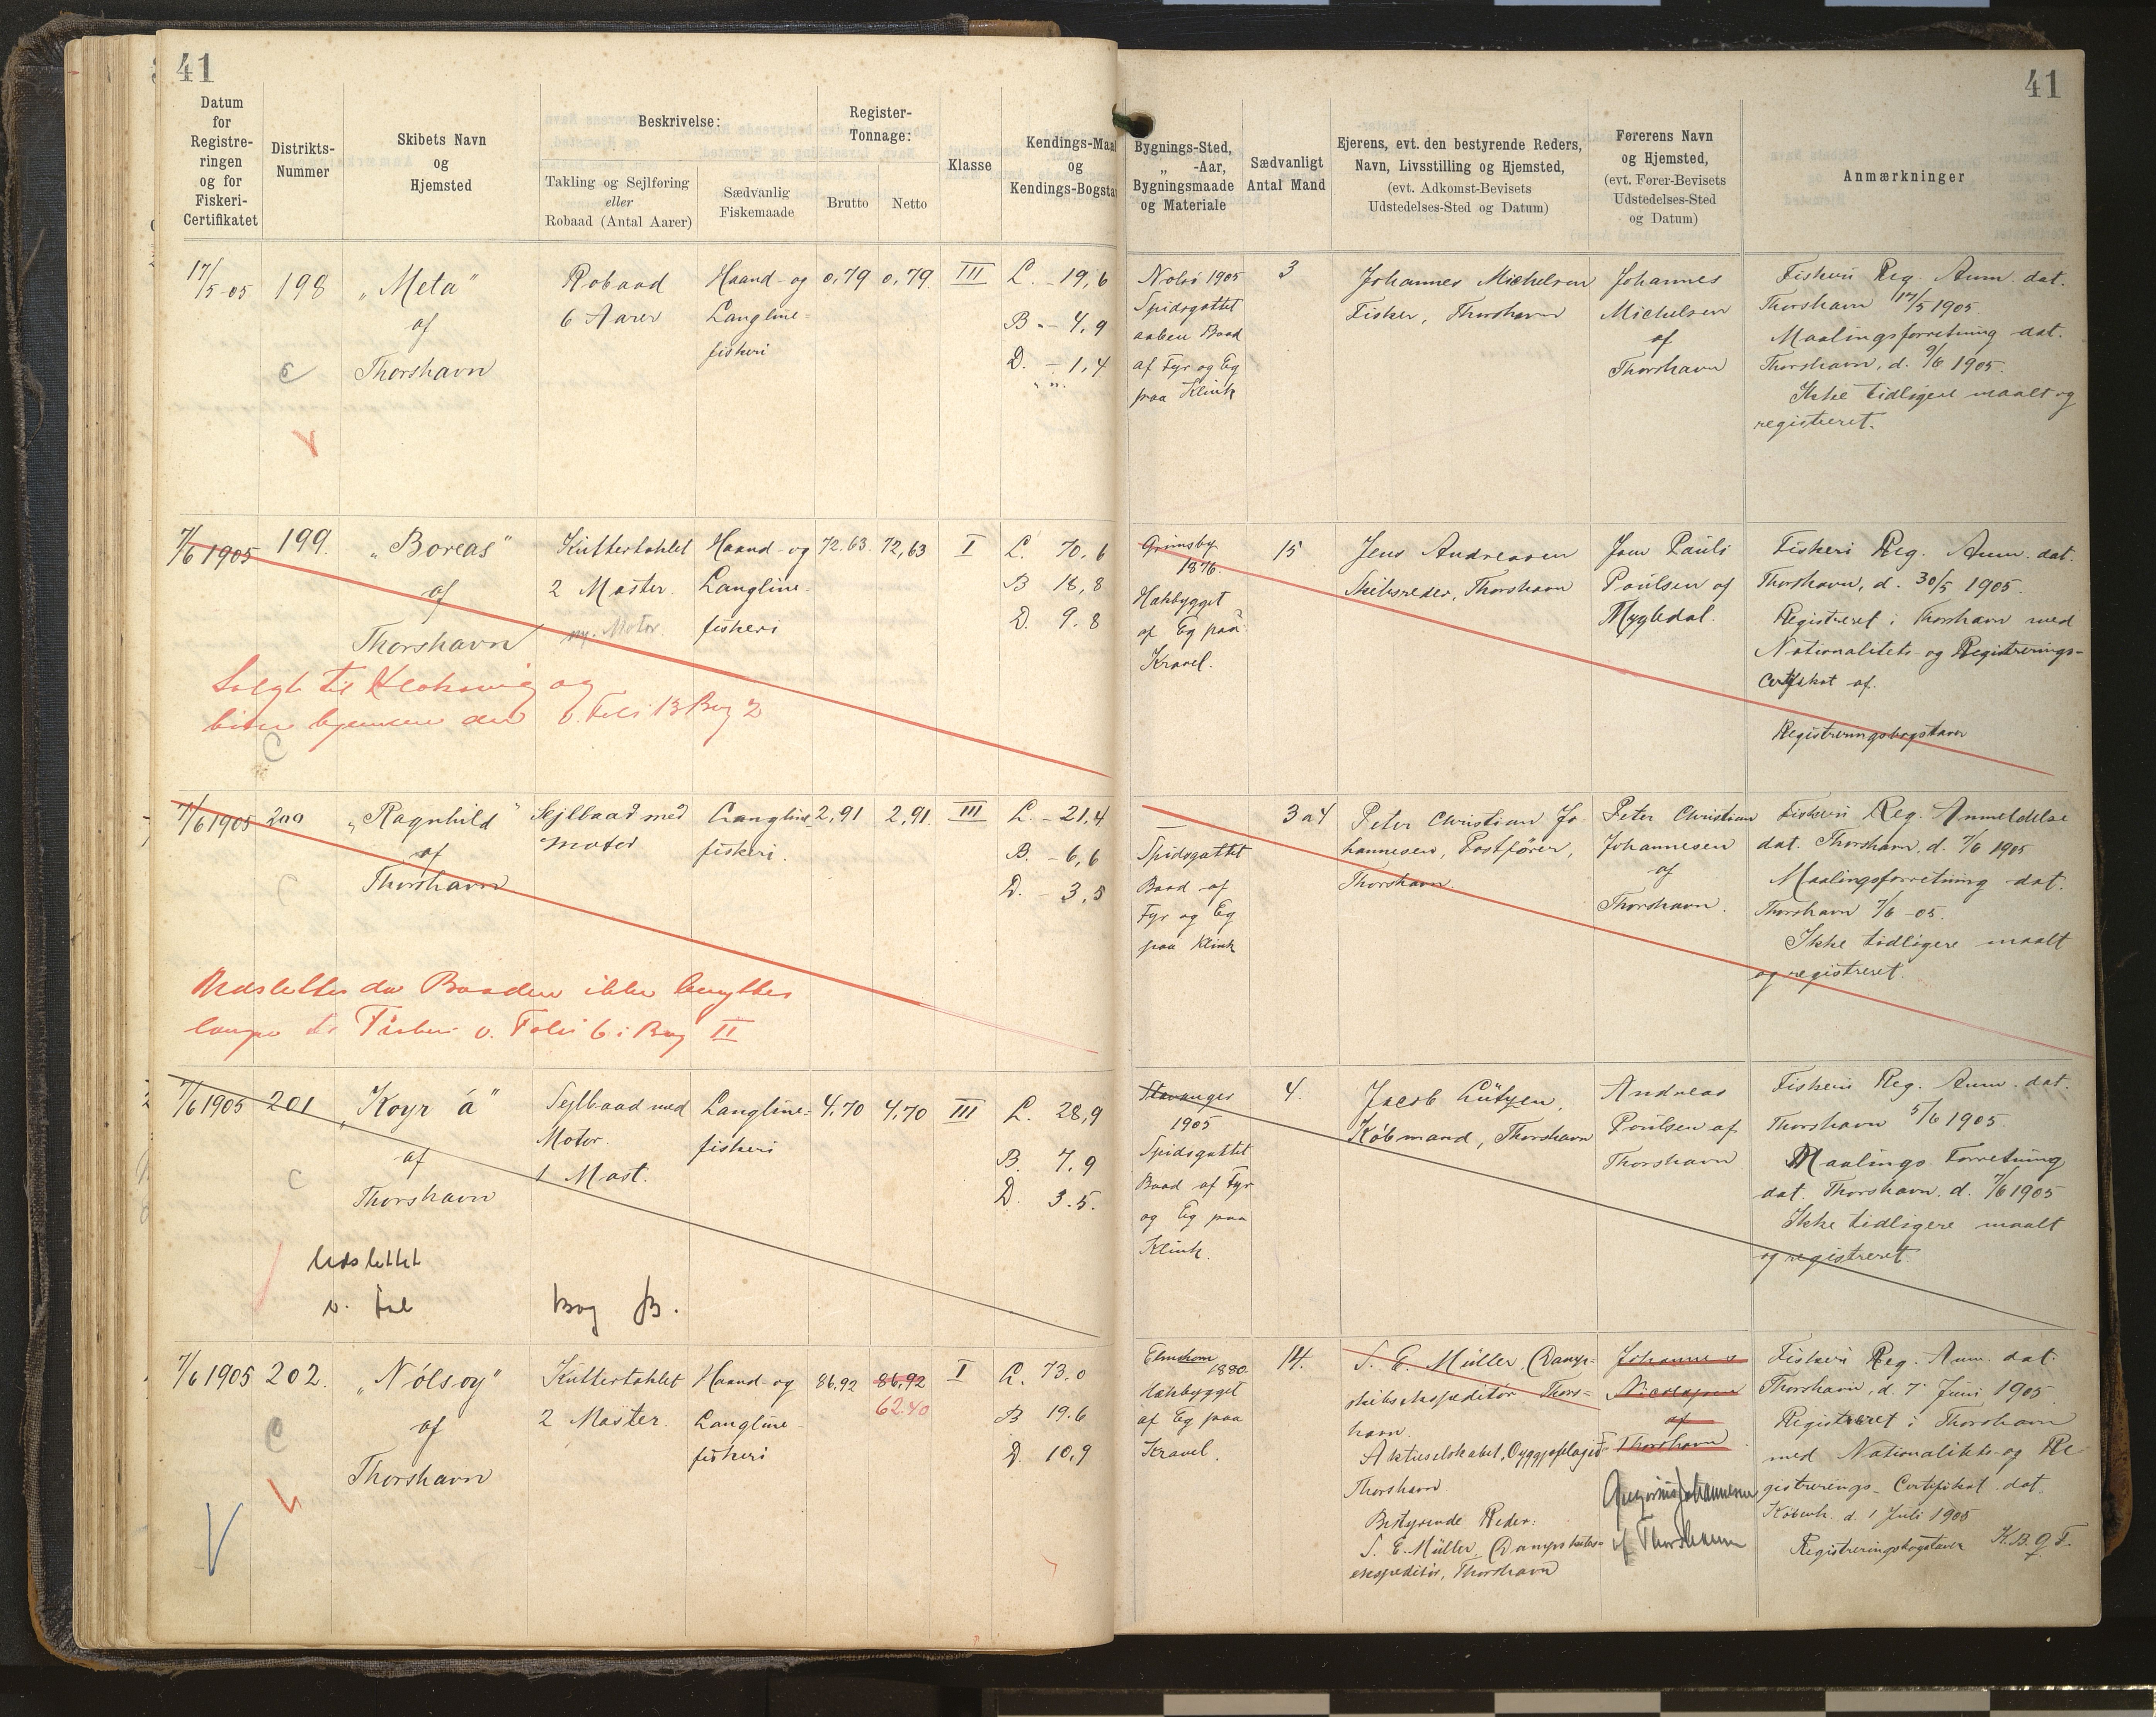 41
41
Datum
for
Registre-
ringen
og for
Fiskeri-
Certifikatet
Distrikts-
Nummer
Skibets Navn
og
Hjemsted
Beskrivelse:
Takling og Sejlføring
eller
Robaad (Antal Aarer)
Sædvanlig
Fiskemaade
Register-
Tonnage:
Brutto
Netto
Klasse
Kendings-Maal
og
Kendings-Bogsta
Bygnings-Sted,
„ -Aar,
Bygningsmaade
og Materiale
Sædvanligt
Antal Mand
Ejerens, evt. den bestyrende Reders,
Navn, Livsstilling og Hjemsted,
(evt. Adkomst-Bevisets
Udstedelses-Sted og Datum)
Førerens Navn
og Hjemsted,
(evt. Fører-Bevisets
Udstedelses-Sted
og Datum)
Anmærkninger
17/5-05
198
„Meta"
af
Thorshavn
C
Robaad
6 Aarer
Haand- og
Langline-
fiskeri
0,79
0,79
III
L. - 19,6
B. - 4,9
D. - 1,4
Nolsö 1905
Spidsgattet
aaben Baad
af Fyr og Eg
paa Klink
3
Johannes Michelsen
Fisker, Thorshavn
Johannes
Michelsen
af
Thorshavn
Fiskeri Reg. Anm. dat.
Thorshavn 17/5 1905.
Maalingsforretning dat.
Thorshavn, d. 9/6 1905.
Ikke tidligere maalt og
registreret.
7/6 1905
199.
„Boreas"
af
Thorshavn
Kuttertaklet
2 Master.
Motor
Haand- og
Langline-
fiskeri
72,63.
72,63
I
L. 70,6
B 18,8
D. 9.8
Solgt til Klaksvig og
v. Foli 13 Bog 2
C
Grimsby
1876.
Hækbygget
af Eg paa
Kravel.
15
Jens Andreasen
Skibsreder, Thorshavn
Joen Pauli
Poulsen af
Mygledal.
Fiskeri Reg. Anm. dat.
Thorshavn, d. 30/5 1905.
Registreret i Thorshavn med
Nationalitets- og Registrerings-
Certifikat af.
Registreringsbogstaver
7/6 1905
200
„Ragnhild"
af
Thorshavn
C
Sejlbaad med
Motor
Langline-
fiskeri.
2,91
2,91.
III
L. - 21,4
B. - 6,6
D. - 3,5
Udslettes da Baaden ikke benyttes
længer til Fiskeri v. Folio 6 i Bog II
Spidsgattet
Baad af
Fyr og Eg
paa Klink
3 a 4
Peter Christian Jo-
hannesen, Postfører,
Thorshavn.
Peter Christian
Johannesen
af
Thorshavn.
Fiskeri Reg. Anmeldelse
dat. Thorshavn, d. 7/6 1905
Maalingsforretning dat.
Thorshavn 7/6 -05.
Ikke tidligere maalt
og registreret.
7/6 1905
201
„Koyr á"
af
Thorshavn
C
Sejlbaad med
Motor.
1 Mast.
Langline-
fiskeri
4,70
4,70
III
L. 28,9
B. 7,9
D. 3.5.
Udslettet
v. Fol
Bog B.
Stavanger
1905
Spidsgattet
Baad af Fyr
og Eg paa
Klink.
4.
Jacob Lützen,
Købmand, Thorshavn
Andreas
Poulsen af
Thorshavn
Fiskeri Reg. Anm. dat.
Thorshavn 5/6 1905.
Maalings Forretning
dat. Thorshavn. d. 7/6 1905
Ikke tidligere maalt
og registreret.
7/6 1905
202.
„Nólsoy"
af
Thorshavn
C
Kuttertaklet
2 Master.
Haand- og
Langline-
fiskeri
86,92
86,92
62.40
I
L. 73,0
B 19.6
D. 10,9
Elmshorn
1880.
Hækbygget
af Eg paa
Kravel.
14.
S. E. Müller, Damp-
skibsekspeditör Thors-
havn.
Aktieselskabet
Thorshavn
Bestyrende Reder:
S. E. Müller, Dampskibs-
ekspeditör, Thorshavn
Johannes
Nicolajsen
af
Thorshavn
Gregorius Johannesen
af Thorshavn
Fiskeri Reg. Anm. dat.
Thorshavn, d. 7 Juni 1905
Registreret i Thorshavn
med Nationalitets- og Re-
gistrerings- Certifikat dat.
Københ. d. 1 Juli 1905
Registreringsbogstaver K.B.Q.F.